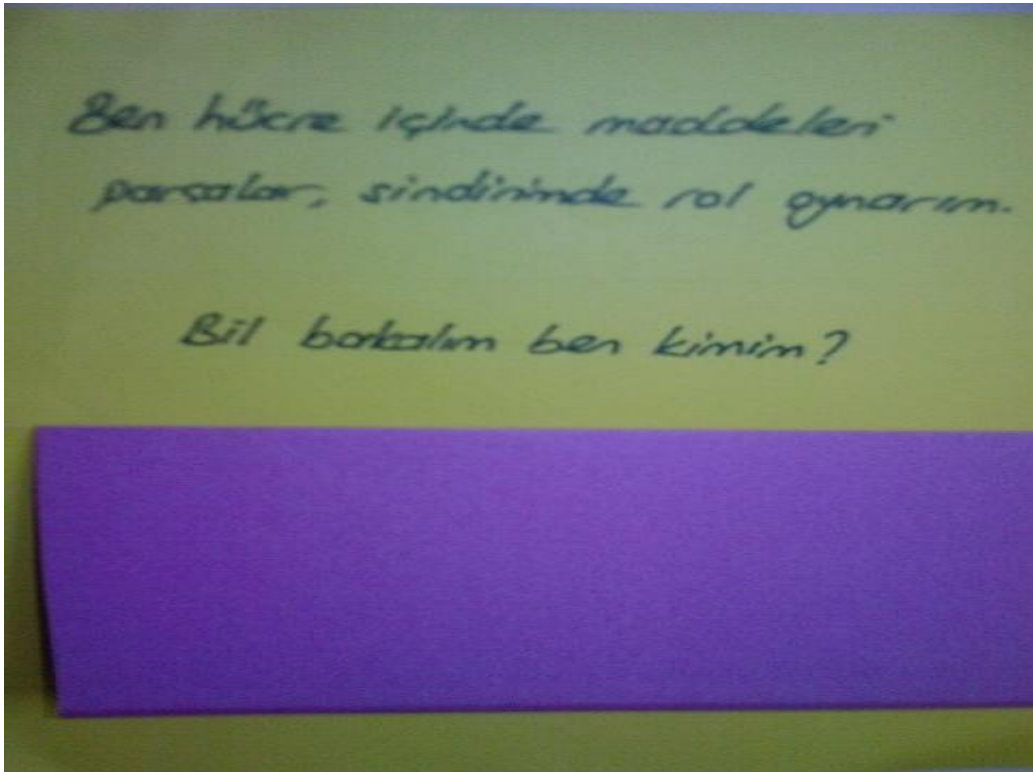 Ben hücre içinde maddeleri
parçalar, sindirimde rol oynarım.
Bil bakalım ben kimim?